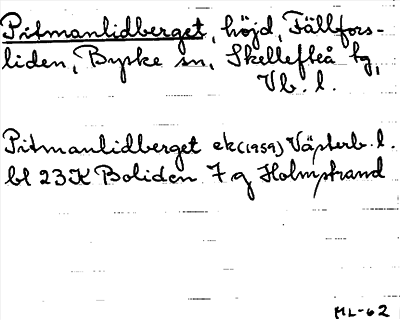 Pitmanlidberget, höjd, Fällfors-
liden, Byske sn, Skellefteå tg,
Vb. l.
Pitmanlidberget ek (1959) Västerb. l.
bl 23K Boliden 7 g Holmstrand
ML-62